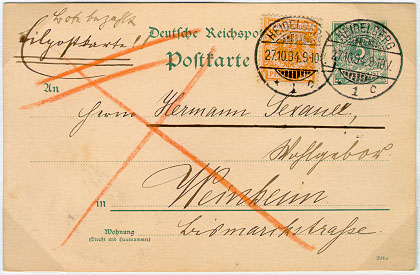 Bote bezahlt
Eilpostkarte!
Deutsche Reichspost
Postkarte
HEIDELBERG
27.10.94.9-10V.
1 c
HEIDELBERG
27.10.94.9-10V.
1 c
An
Herrn Hermann Sexauer,
Wohlgebor.
in Weinheim
Wohnung
(Straße und Hausnummer)
Bismarckstrasse.